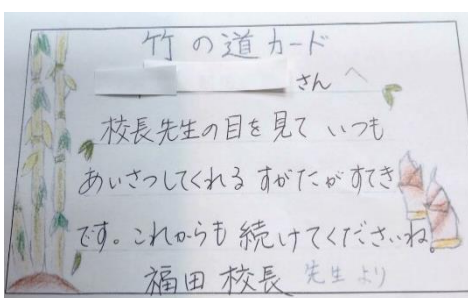 竹の道カード
さんへ
校長先生の目を見て いつも
あいさつしてくれる すがたがすてき
です。これからも 続けてくださいね。
福田 校長 先生 より